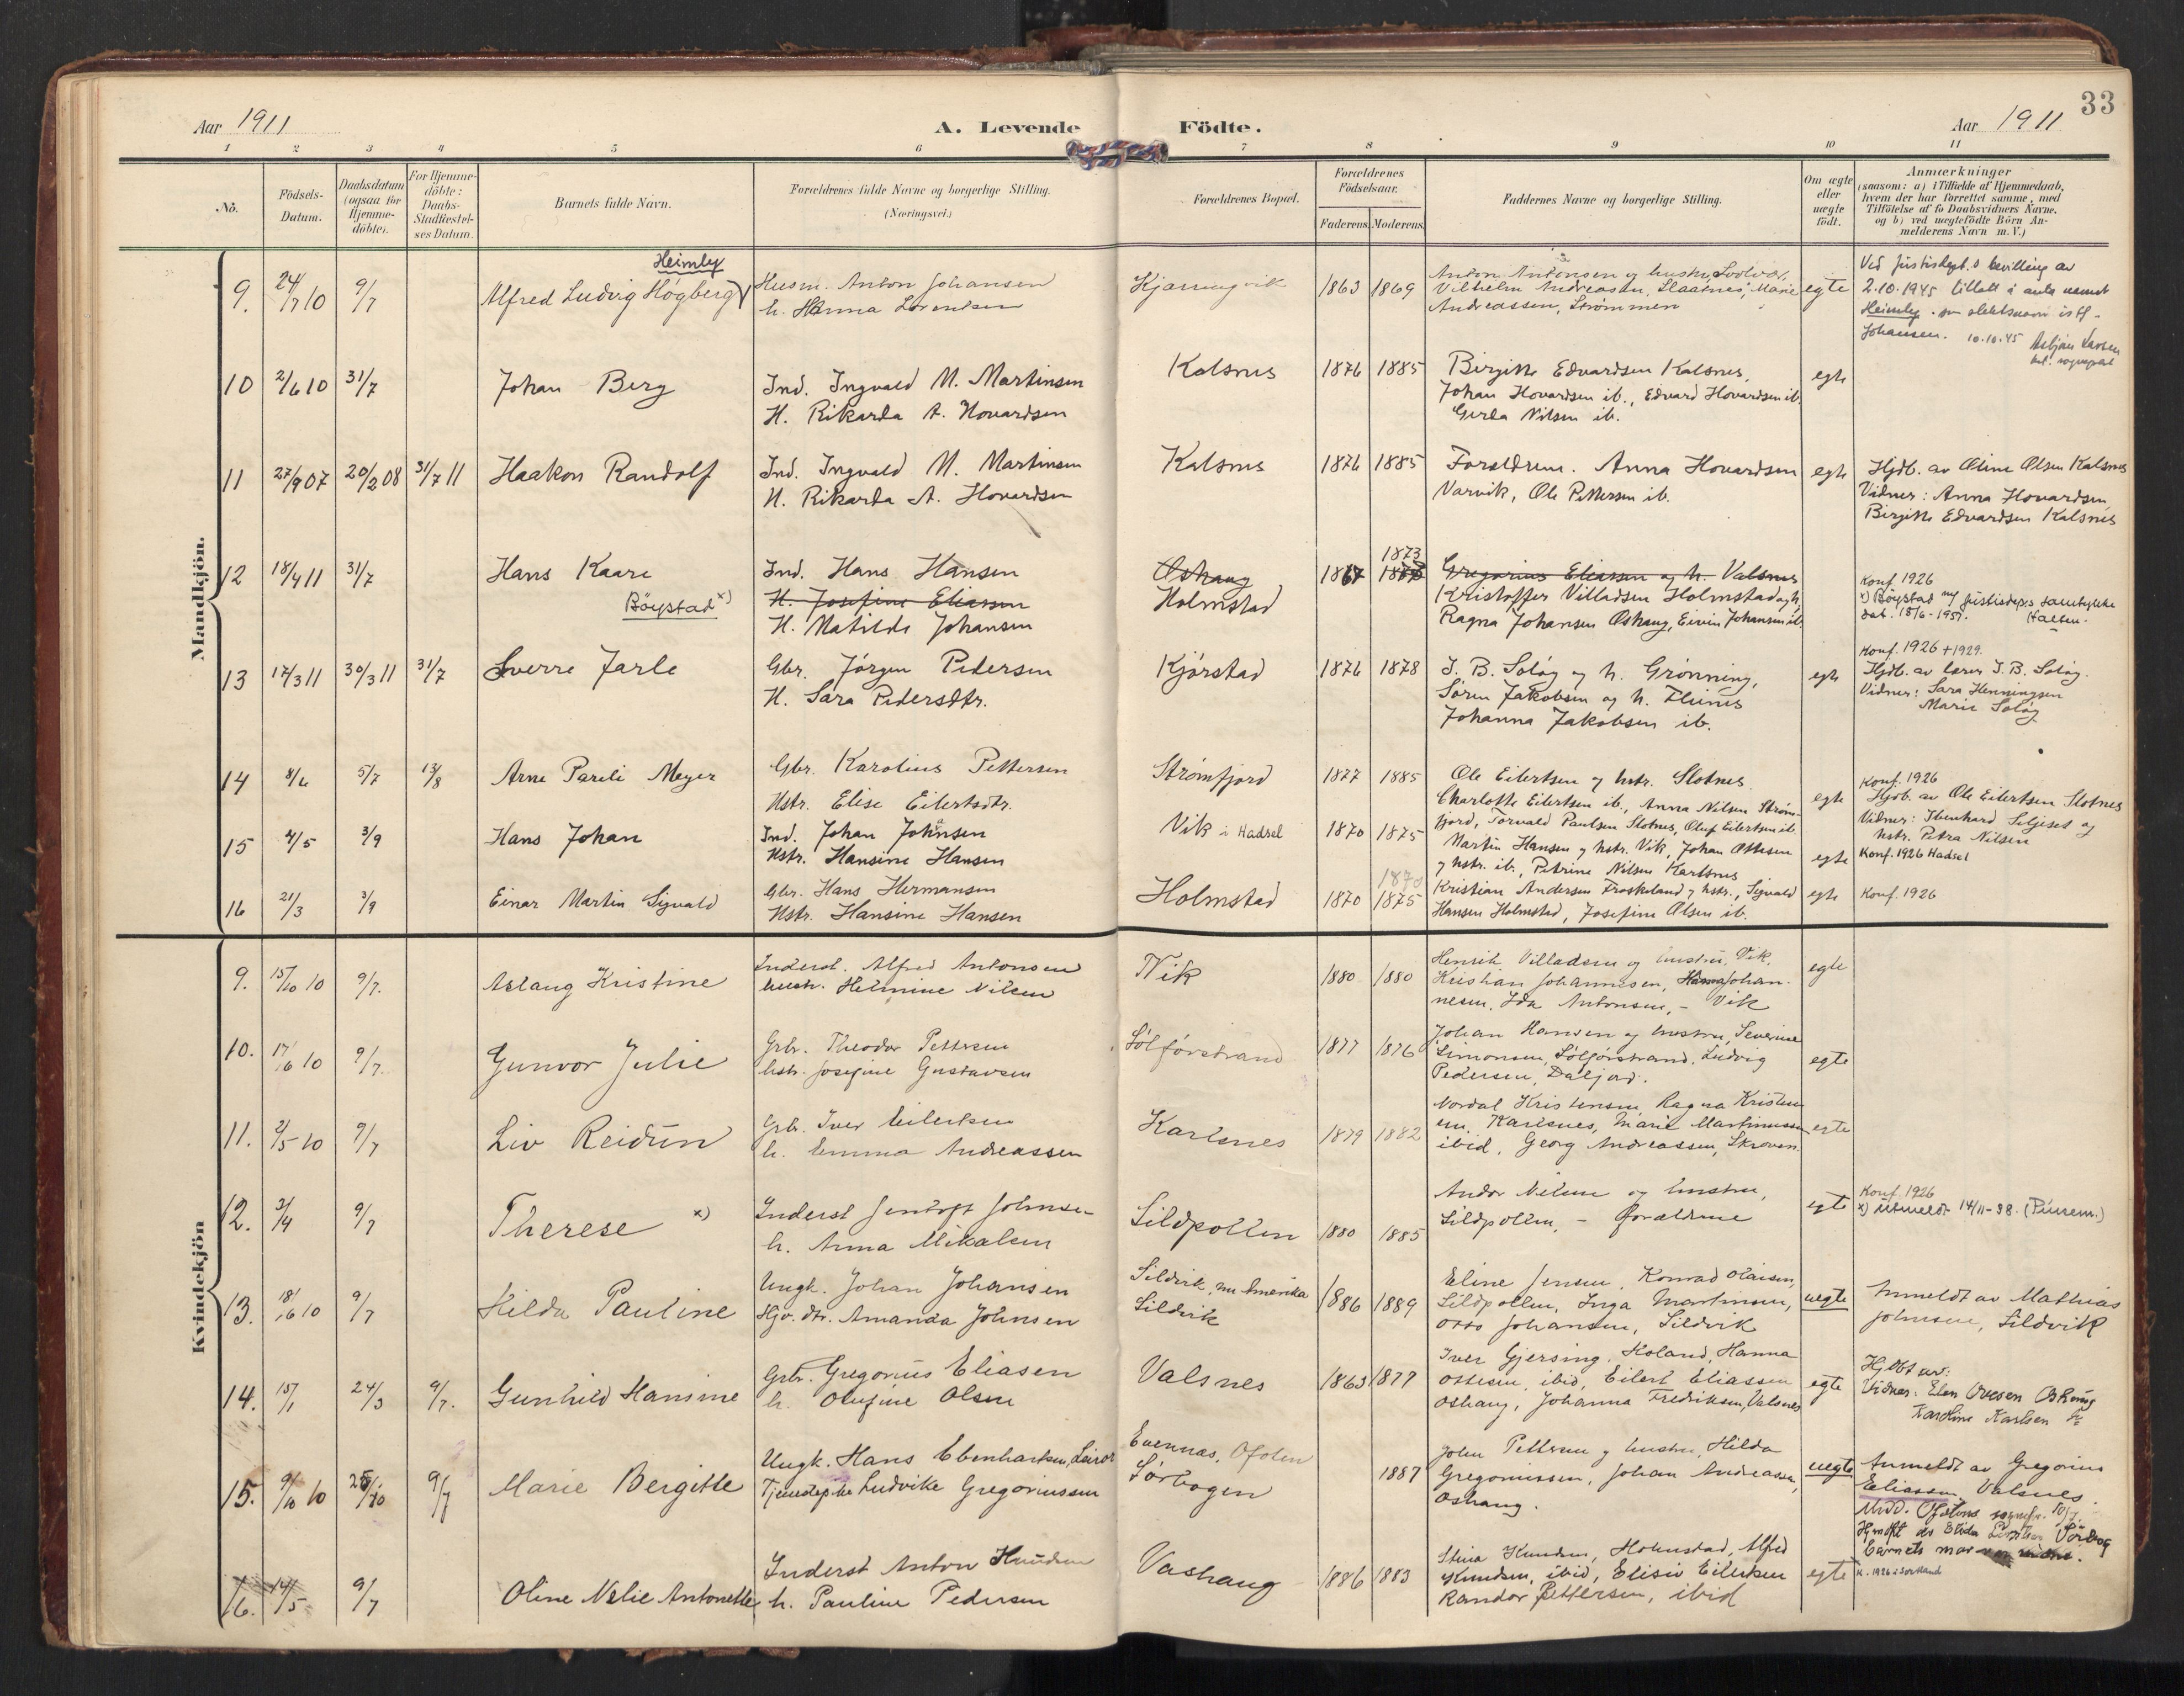 33
Aar 1911 A. Levende Födte. Aar 1911
1 2 3 4 5 6 7 8 9 10 11
No.
Födsels-
Datum.
Daabsdatum
(ogsaa for
Hjemme-
döbte).
For Hjemme-
döbte:
Daabs-
Stadfæstel-
ses Datum.
Barnets fulde Navn.
Forældrenes fulde Navne og borgerlige Stilling.
(Næringsvei.)
Forældrenes Bopæl.
Forældrenes
Födselsaar.
Faderens. Moderens.
Faddernes Navne og borgerlige Stilling.
Om ægte
eller
uægte
födt.
Anmærkninger
(saasom: a) i Tilfælde af Hjemmedaab,
hvem der har forrettet samme, med
Tilföielse af to Daabsvidners Navne,
og b) ved uægtefödte Börn An-
melderens Navn m. V.)
Mandkjön.
9. 24/7 10 9/7
Heimly
Alfred Ludvig Høgberg
Husm. Anton Johansen
h. Hanna Lorentsen
Kjærringvik 1863 1869
Anton Antonsen og hustru, Svolvær,
Vilhelm Andreassen, Slaatnes, Marie
Andreassen, Strømmen
egte
Ved justisdept.s bevilling av
2.10.1945 tillatt å anta navnet
Heimly som slektsnavn istf.
Johansen. 10.10.45 Asbjørn Larsen
10 2/6 10 31/7
Johan Berg
Ind. Ingvald M. Martinsen
H. Rikarda A. Hovardsen
Kalsnes 1876 1885
Birgitte Edvardsen Kalsnes,
Johan Hovardsen ib., Edvard Hovardsen ib.
Gerda Nilsen ib.
egte
11 27/9 07 20/2 08 31/7 11
Haakon Randolf
Ind. Ingvald M. Martinsen
H. Rikarda A. Hovardsen
Kalsnes 1876 1885
Forældrene. Anna Hovardsen
Varvik, Ole Pettersen ib.
egte
Hjdb. av Oline Olsen Kalsnes
Vidner: Anna Hovardsen
Birgitte Edvardsen Kalsnes
12 18/4 11 31/7
Hans Kaare
Böystad x)
Ind. Hans Hansen
H. Josefine Eliassen
H. Matilde Johansen
Oshaug
Holmstad
1867 1873
Gregorius Eliassen og h. Valsnes
Kristoffer Villadsen Holmstad og h.,
Ragna Johansen Oshaug, Eivin Johansen ib.
Konf. 1926
x) Böystad mg justisdep.s samtykke
dat. 18/6-1951. Halsen.
13 17/3 11 30/3 11 31/7
Sverre Jarle
Gbr. Jörgen Pedersen
H. Sara Pedersdtr.
Kjørstad 1876 1878
J. B. Solöy og h. Grönning,
Sören Jakobsen og h. Flunes
Johanna Jakobsen ib.
egte
Konf. 1926 +1929.
Hjdb. av lærer J. B. Solöy.
Vidner: Sara Henningsen
Marie Solöy
14 8/6 5/7 13/8
Arne Pareli Meyer
Gbr. Karolius Pettersen
Hstr. Elise Eilertsdtr.
Strømfjord 1877 1885
Ole Eilertsen og hstr. Slotnes
Charlotte Eilertsen ib., Anna Nilsen Strøm-
fjord, Torvald Paulsen Slotnes, Oluf Eilertsen ib.
egte
Konf. 1926
Hjdb. av Ole Eilertsen Slotnes
Vidner: Ibenhard Seljeset og
hstr. Petra Nilsen
15 4/5 3/9
Hans Johan
Ind. Johan Johnsen
Hstr. Hansine Hansen
Vik i Hadsel 1870 1875
Martin Hansen og hstr. Vik, Johan Ottesen
og hstr. ib., Petrine Nilsen Karlsnes
egte
Konf. 1926 Hadsel
16 21/3 3/9
Einar Martin Sigvald
Gbr. Hans Hermansen
Hstr. Hansine Hansen
Holmstad 1870 1870
1875
Kristian Andersen Froskeland og hstr., Sigvald
Hansen Holmstad, Josefine Olsen ib.
egte
Konf. 1926
Kvindekjön
9. 15/10 10 9/7.
Aslaug Kristine
Inderst. Alfred Antonsen
hustr. Helmine Nilsen
Vik 1880 1880
Henrik Villadsen og hustru, Vik,
Kristian Johannesen, Hanna Johan-
nesen, Ida Antonsen, - Vik
egte
10. 17/6 10 9/7.
Gunvor Julie
Grbr. Theodor Pettersen
hstr. Josefine Gustavsen
Sølførstrand 1877 1876
Johan Hansen og hustru, Severine
Simonsen, Sølførstrand, Ludvig
Pedersen, Daljord.
egte
11. 2/5 10 9/7
Liv Reidun
Grb. Iver Eilertsen
h. Emma Andreassen
Karlsnes 1879 1882
Nordal Kristensen, Ragna Kristen-
sen, Karlsnes, Marie Martinussen
ibid, Georg Andreassen, Skroven.
egte
12. 3/4 9/7
Therese x)
Inderst Jentoft Johnsen
h. Anna Mikalsen
Sildpollen 1880 1885
Andor Nilsen og hustru,
Sildpollen, - Forældrene
egte
Konf. 1926
x) Utmeldt 14/11-38. (Pinsem.)
13. 18/6 10 9/7
Hilda Pauline
Ungk. Johan Johansen
Hjv. dtr. Amanda Johnsen
Sildvik, nu Amerika
Sildvik
1886 1889
Eline Jensen, Konrad Olaisen,
Sildpollen, Inga Martinsen,
Otto Johansen, Sildvik
uegte
Anmeldt av Mathias
Johnsen, Sildvik
14. 15/1 24/3 9/7.
Gunhild Hansine
Grbr. Gregorius Eliasen
h. Olufine Olsen
Valsnes 1863 1877
Iver Gjersing, Holand, Hanna
Ottesen, ibid, Eilert Eliassen
Oshaug, Johanna Fredriksen, Valsnes
egte
Hjdbt av:
Vidner: Elen Ovesen Oshaug
Karoline Karlsen
15. 9/10 10 25/10 9/7
Marie Bergitte
Ungk. Hans Ebenhartsen, Leiros
Tjenestepike Ludvike Gregoriussen
Evennæs, Ofoten
Sørbogen
1887
John Pettersen og hustru, Hilda
Gregoriussen, Johan Andreassen,
Oshaug.
uegte
Anmeldt av Gregorius
Eliassen, Valsnes.
Medd. Ofotens sognepr.
16. 14/5 9/7
Oline Nelie Antonette
Inderst Anton Knudsen
h. Pauline Pedersen
Vashaug 1886 1883
Stina Knudsen, Holmstad, Alfred
Knudsen, ibid, Elisiv Eilertsen
Randor Pettersen, ibid
egte
K. 1926 i Sortland